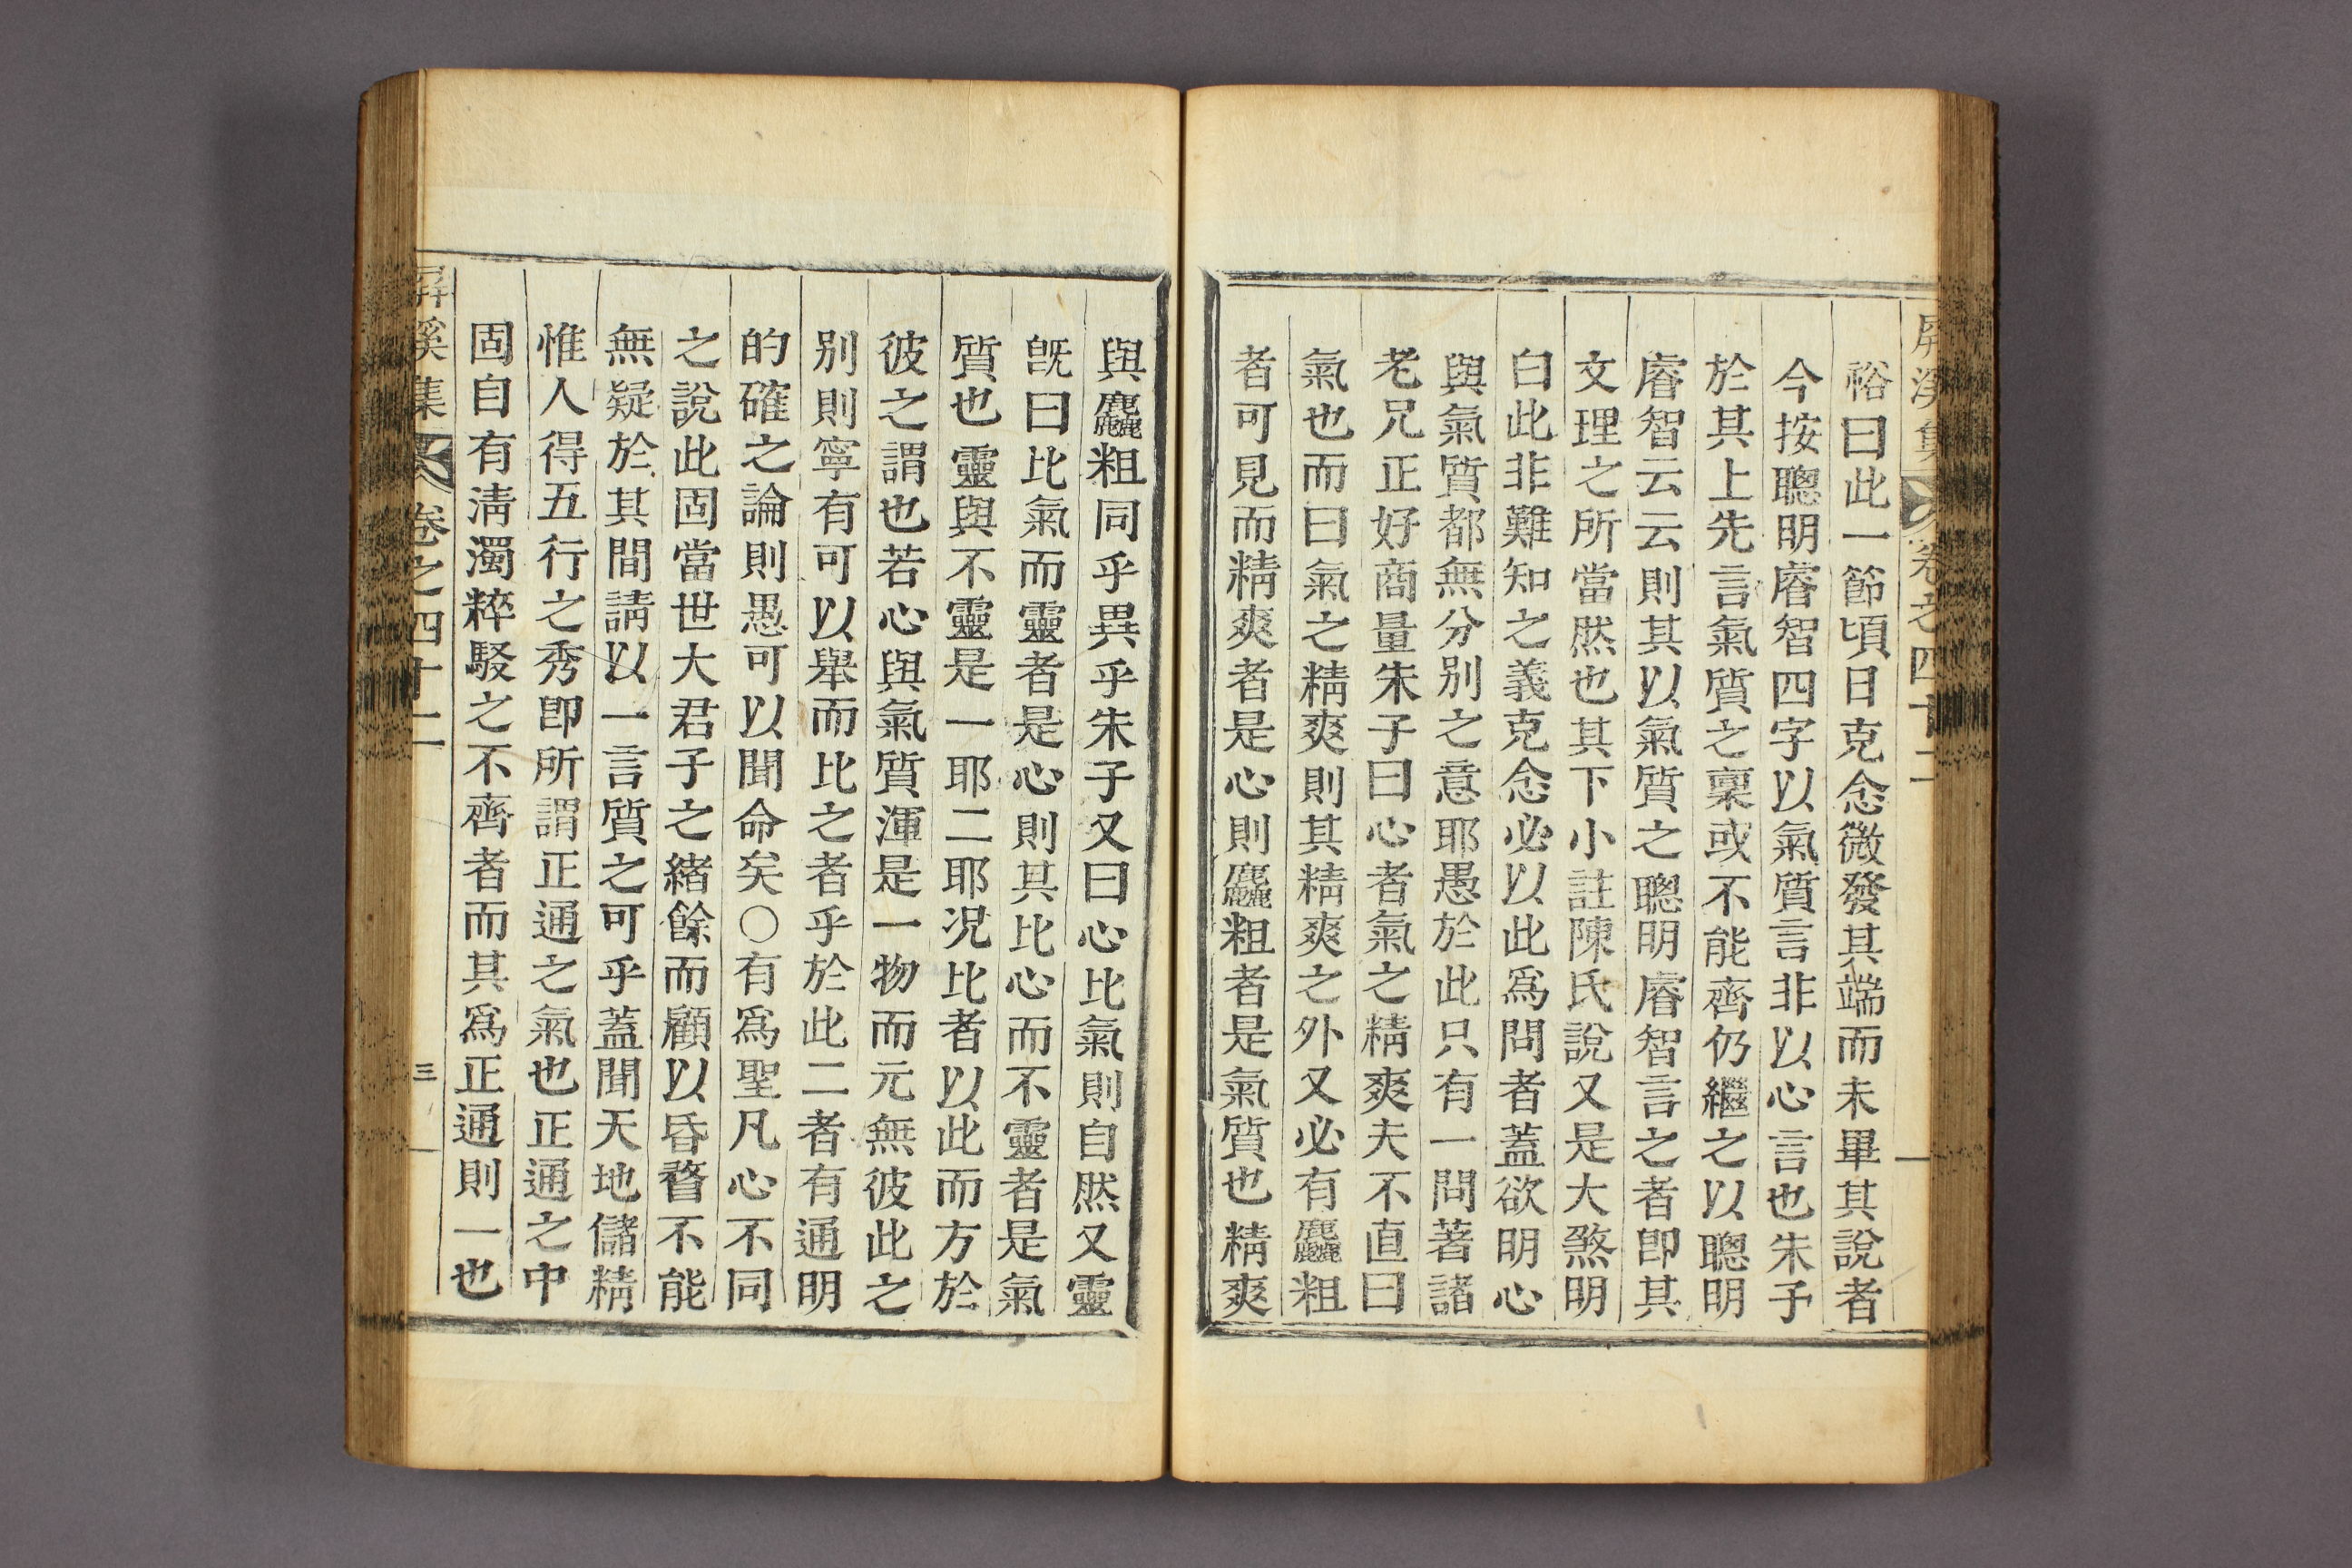 屛溪集 卷之四十二
裕曰此一節頃日克念微發其端而未畢其說者
今按聰明睿智四字以氣質言非以心言也朱子
於其上先言氣質之稟或不能齊仍繼之以聰明
睿智云云則其以氣質之聰明睿智言之者卽其
文理之所當然也其下小註陳氏說又是大煞明
白此非難知之義克念必以此爲問者蓋欲明心
與氣質都無分別之意耶愚於此只有一問著諸
老兄正好商量朱子曰心者氣之精爽夫不直曰
氣也而曰氣之精爽則其精爽之外又必有麤粗
者可見而精爽者是心則麤粗者是氣質也精爽
與麤粗同乎異乎朱子又曰心比氣則自然又靈
旣曰比氣而靈者是心則其比心而不靈者是氣
質也靈與不靈是一耶二耶况比者以此而方於
彼之謂也若心與氣質渾是一物而元無彼此之
別則寧有可以舉而比之者乎於此二者有通明
的確之論則愚可以聞命矣○有爲聖凡心不同
之說此固當世大君子之緖餘而顧以昏瞀不能
無疑於其間請以一言質之可乎蓋聞天地儲精
惟人得五行之秀卽所謂正通之氣也正通之中
固自有淸濁粹駁之不齊者而其爲正通則一也
屛溪集 卷之四十二 三